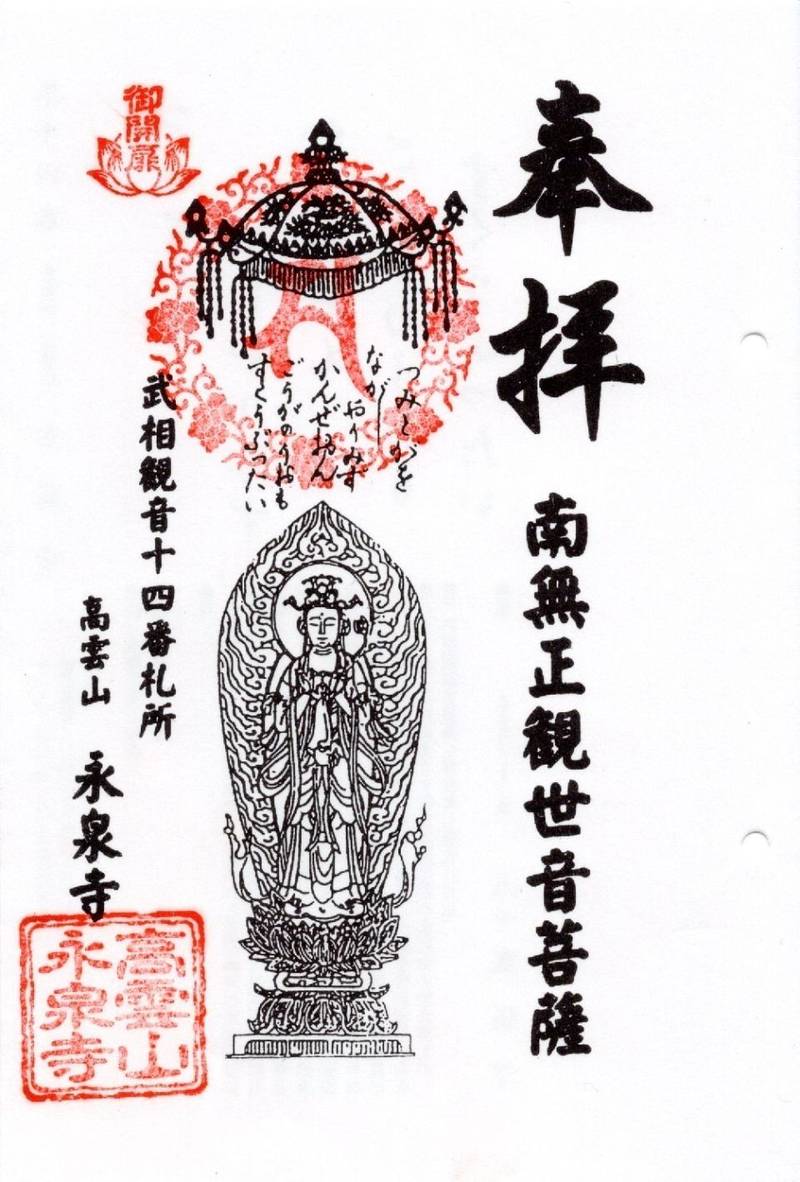 奉拝
南無正観世音菩薩
つみとがを
ながし
おりみず
かんぜおん
ごうがのうおも
すくうぶったい
御開扉
武相観音十四番札所
高雲山
永泉寺
高雲山
永泉寺